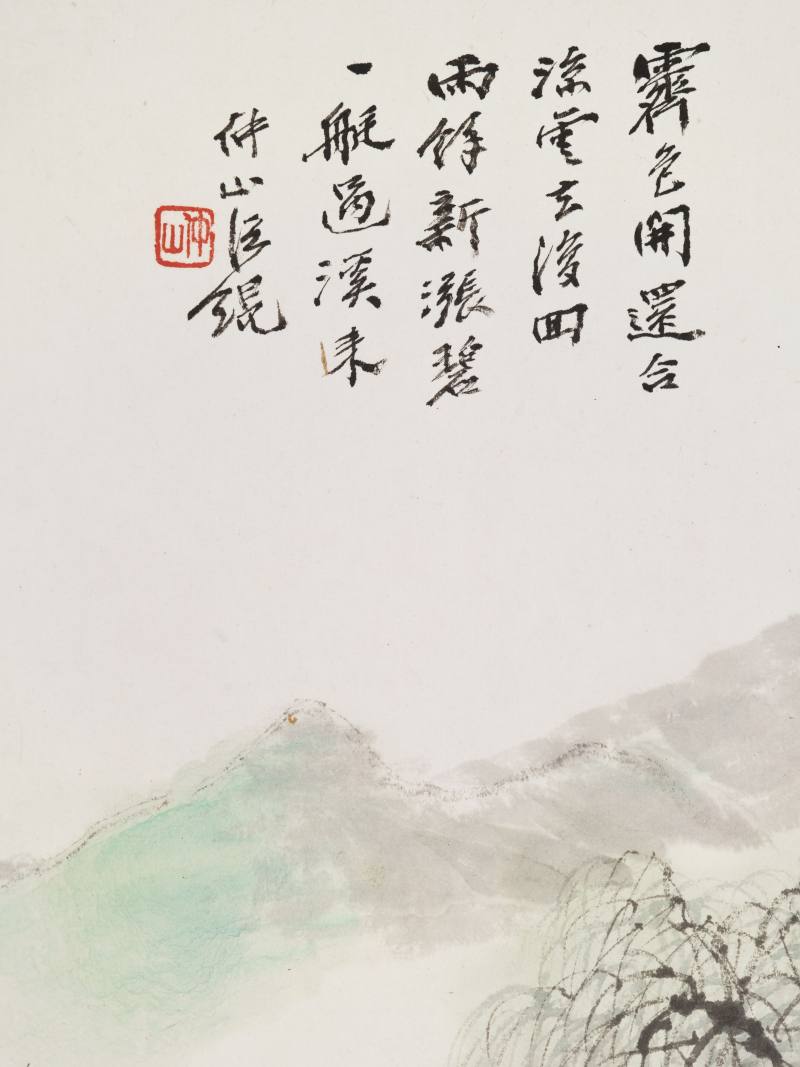 霽色開還合
流雲去復回
雨餘新漲碧
一艇過溪來
仲山汪琨
仲山